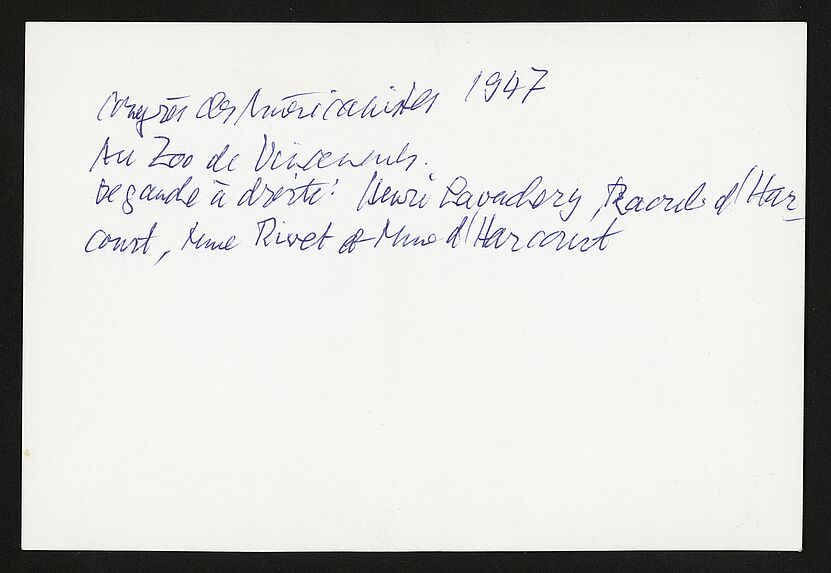 Congrès des Américanistes 1947
Au Zoo de Vincennes.
De gauche à droite: Henri Lavachery, Raoul d'Har-
court, Mme Rivet et Mme d'Harcourt